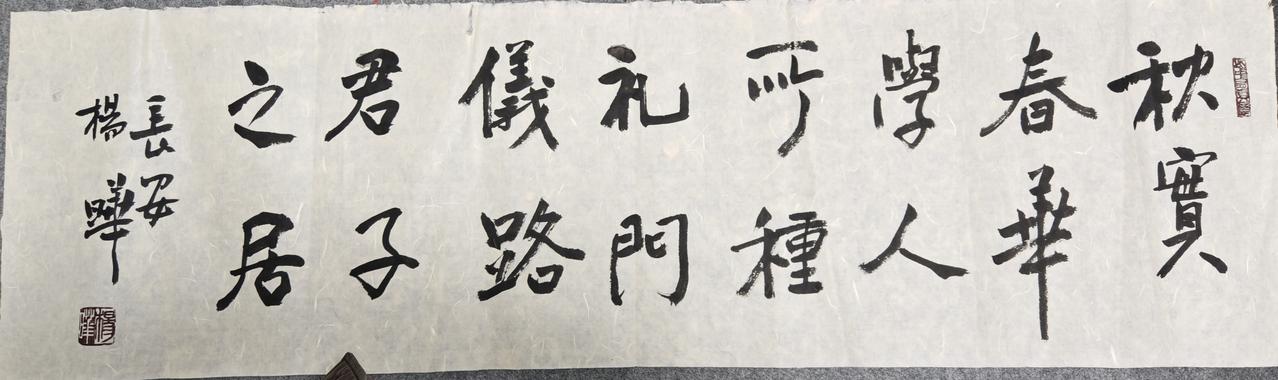 秋實
春華
學人
所種
礼門
儀路
君子
之居
長安
楊曄